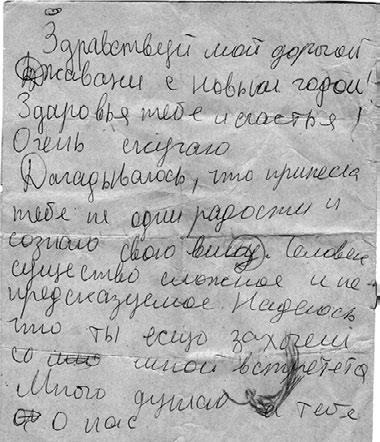 Здравствуй мой дорогой
Джавани с новым годом!
Здаровья тебе и счастья!
Очень скучаю
Дагадывалось, что принесла
тебе не одни радости и
сознаю свою вину. Человек
существо сложное и не-
предсказуемое. Надеюсь
что ты ещё захочеш
со мной встретета
Много думаю о тебе
о нас